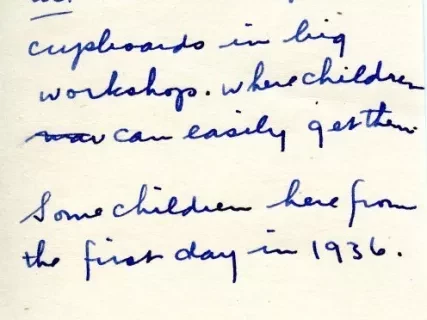 cupboards in big
workshop. where children
can easily get them.
Some children here from
the first day in 1936.